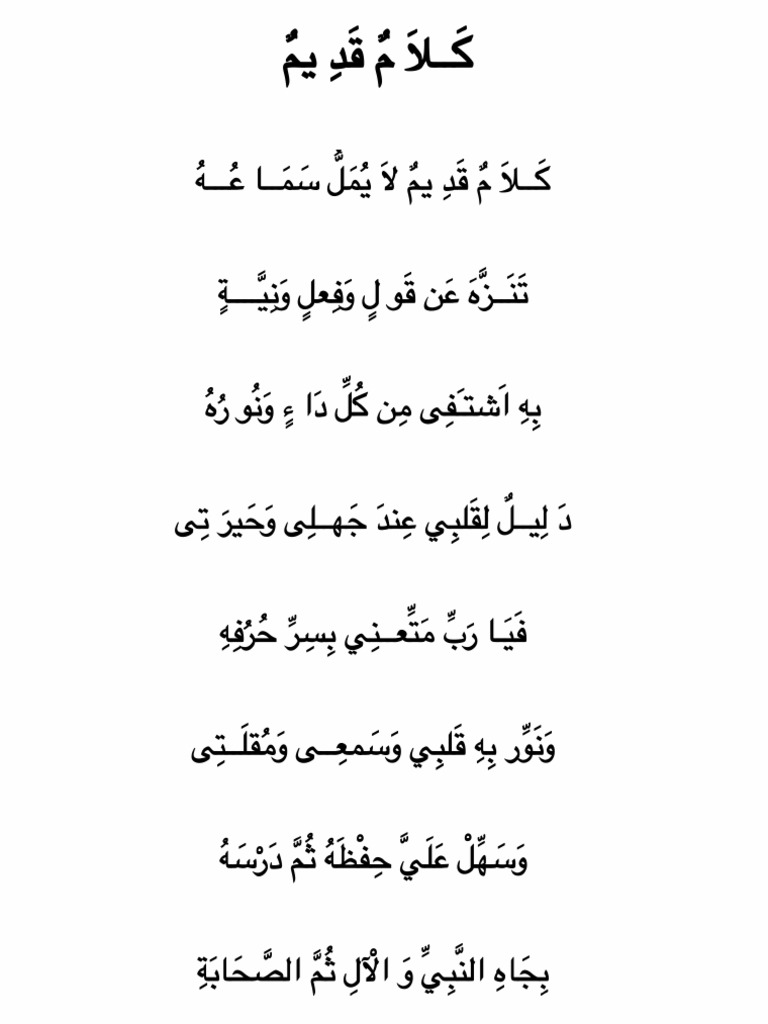 كَـلاَ مٌ قَدِ يمٌ
كَـلاَ مٌ قَدِ يمٌ لاَ يُمَلُّ سَمَـا عُـهُ
تَنَـزَّهَ عَن قَو لٍ وَفِعلٍ وَنِيَّـةٍ
بِهِ اَشتَفِى مِن كُلِّ دَا ءٍ وَنُو رُهُ
دَ لِيـلٌ لِقَلبِي عِندَ جَهـلِى وَحَيرَ تِى
فَيَـا رَبِّ مَتِّعـنِي بِسِرِّ حُرُفِهِ
وَنَوِّر بِهِ قَلبِي وَسَمعِـى وَمُقلَـتِى
وَسَهِّلْ عَلَيَّ حِفْظَهُ ثُمَّ دَرْسَهُ
بِجَاهِ النَّبِيِّ وَ الْآلِ ثُمَّ الصَّحَابَةِ